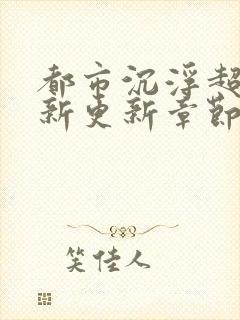 都市沉浮超
新更新章节
笑佳人